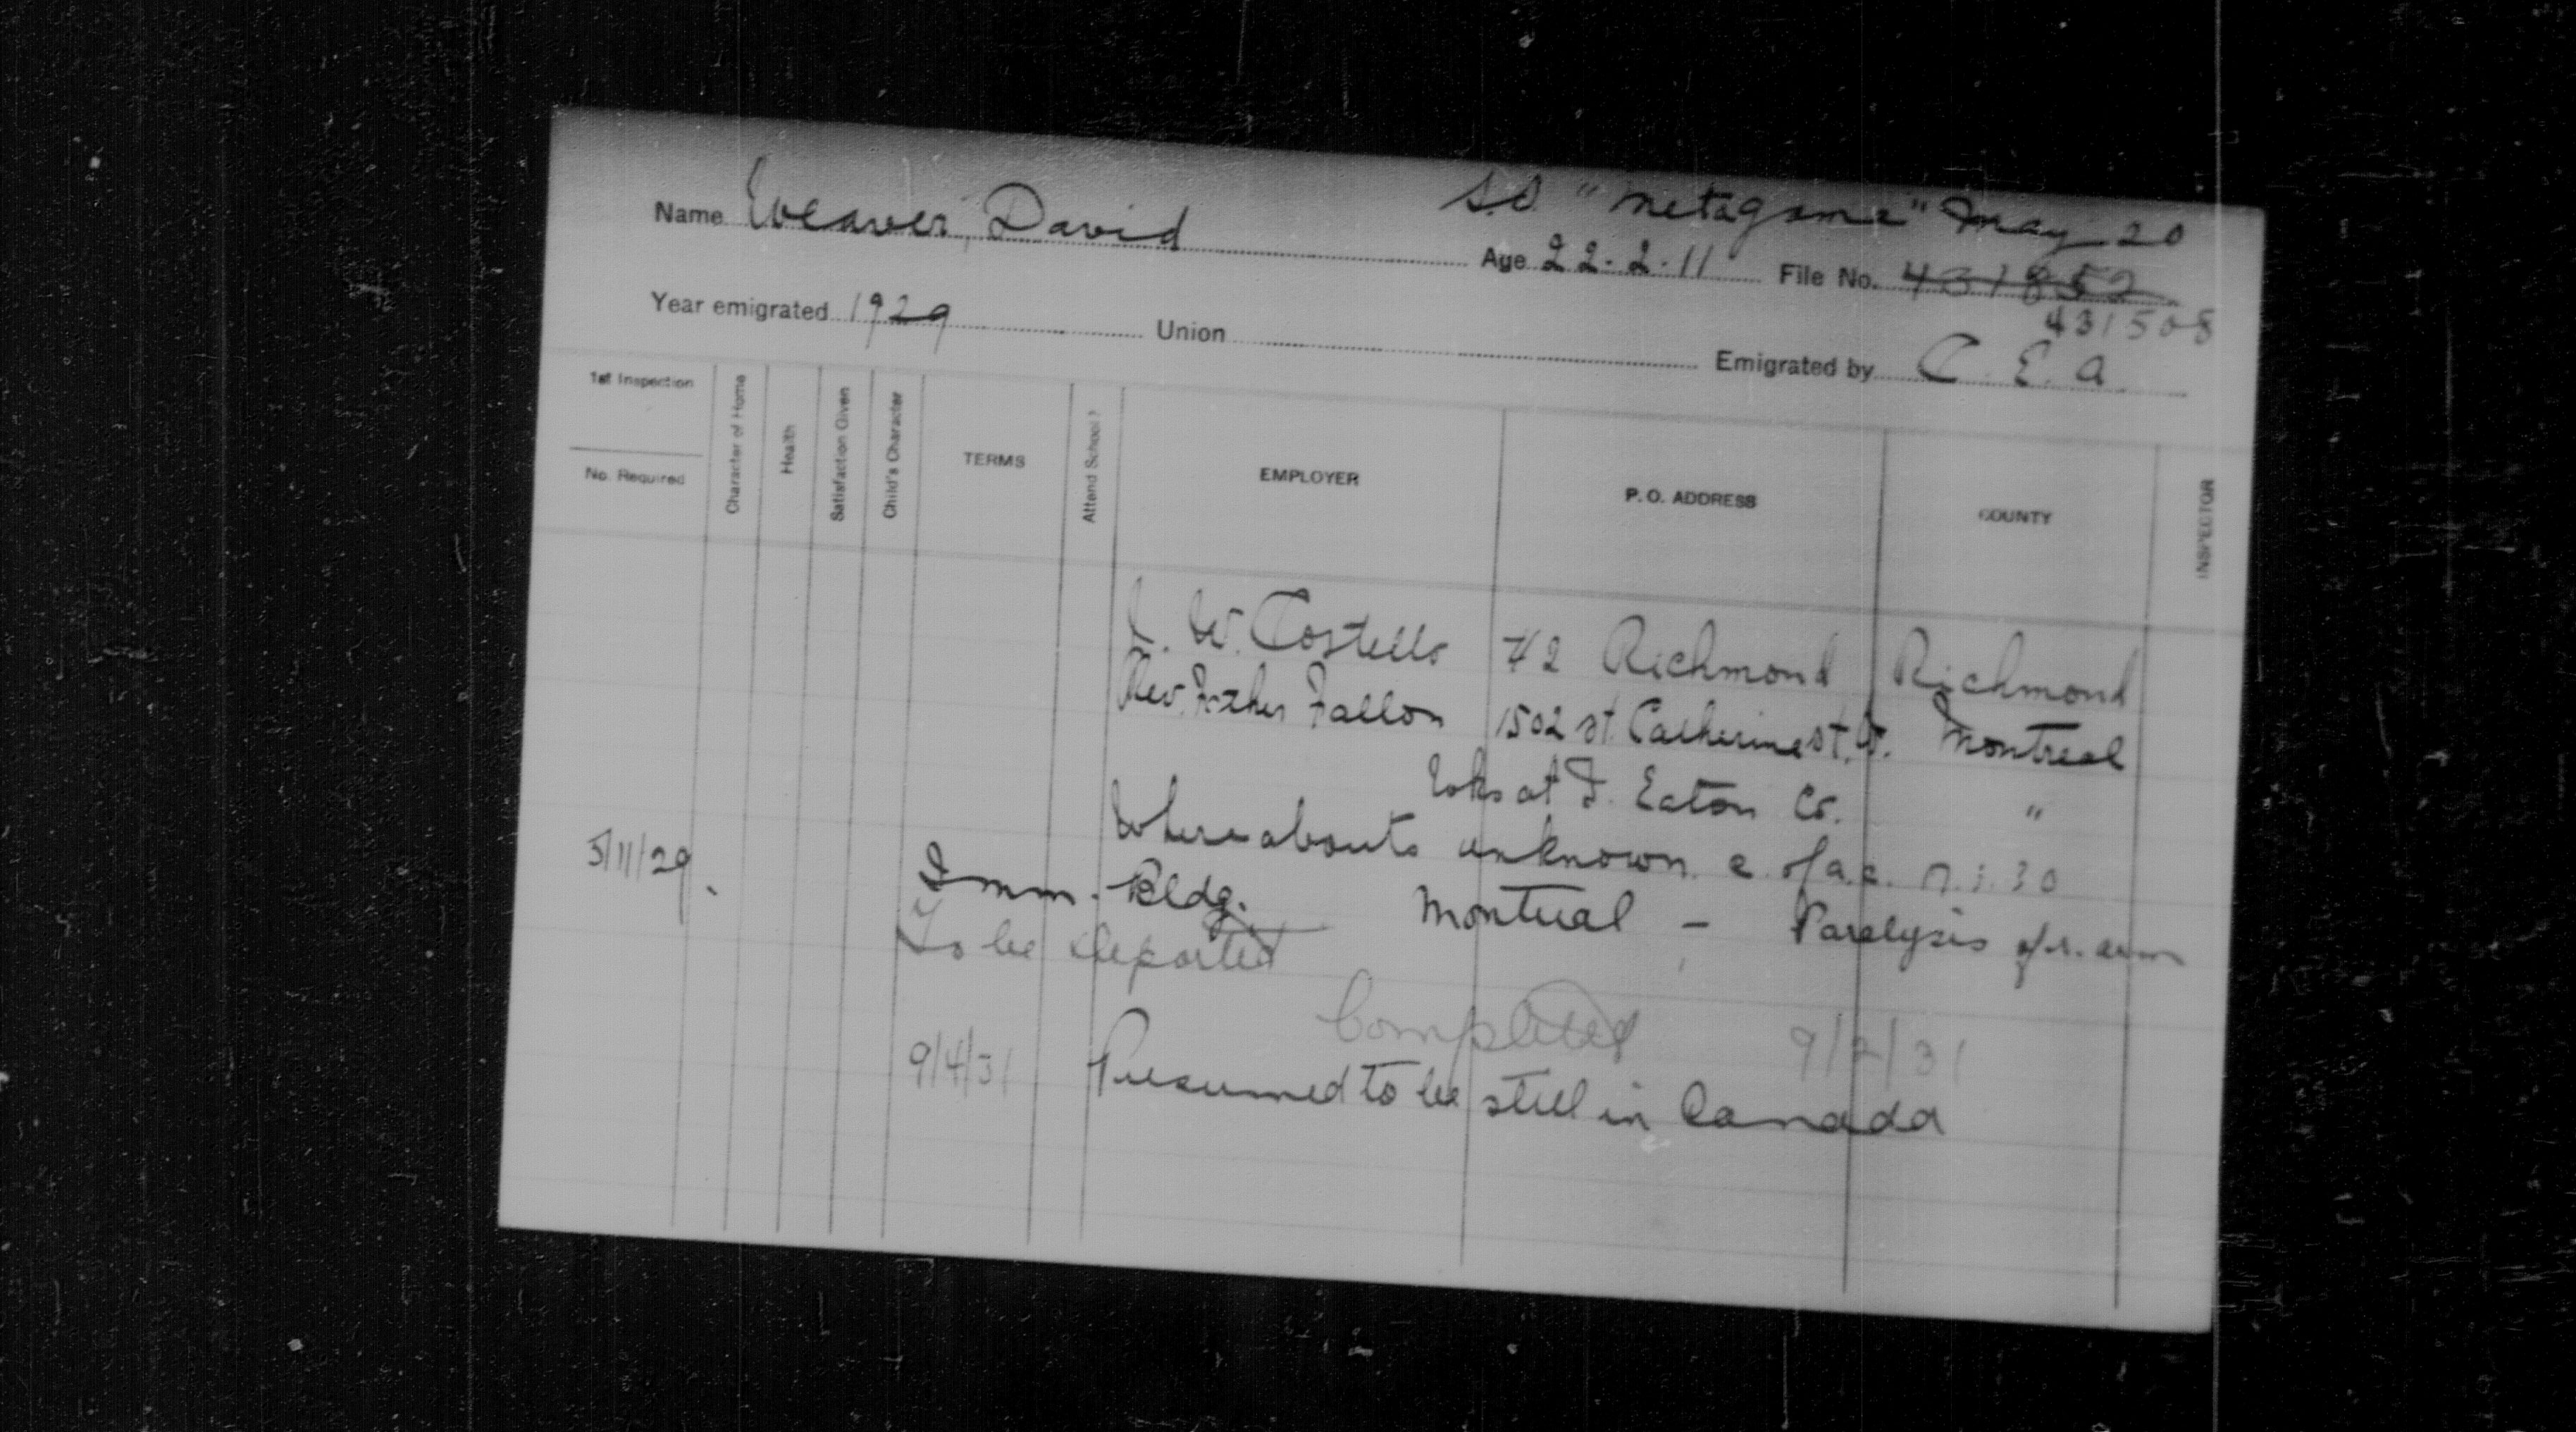 S.S. "Metagama" May 20
Name Weaver, David Age 22.2.11 File No. 431852
431508
Year emigrated 1929 Union Emigrated by C. E. A
1st Inspection
No. Required
Character of Home
Health
Satisfaction Given
Child's Character
TERMS
Attend School?
EMPLOYER
P. O. ADDRESS
COUNTY
INSPECTOR
W. Costello #2 Richmond Richmond
Rev. Father Fallon 1502 St. Catherine St. W. Montreal
Wks at T. Eaton Co. "
Whereabouts unknown.
5/11/29. Imm. Bldg. Montreal - Paralysis of r. arm
To be deported
Completed 9/2/31
9/4/31 Presumed to be still in Canada